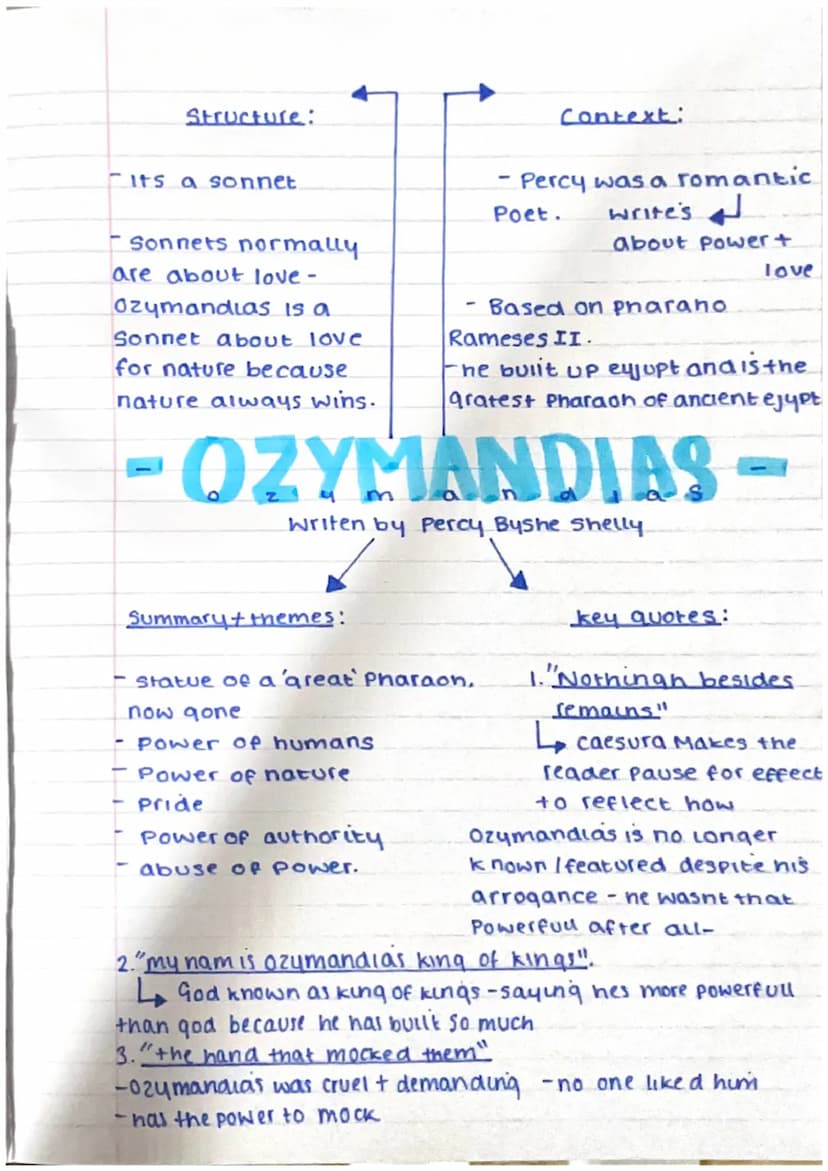 Structure:
- Its a sonnet
- Sonnets normally
are about love -
Ozymandias is a
Sonnet about love
for nature because
nature always wins.
Context:
- Percy was a romantic
Poet. write's
about power +
love
- Based on pharaho
Rameses II.
- he built up eyjupt and is the
gratest Pharaoh of ancient ejypt
- OZYMANDIAS -
o z y m a n d i a s
Writen by Percy Byshe Shelly
Summary + themes:
- Statue of a 'great' Pharaoh,
now gone
- Power of humans
- Power of nature
- Pride
- Power of authority
- abuse of power.
key quotes:
1. "Nothingh besides
remains"
↳ caesura Makes the
reader pause for effect
to reflect how
Ozymandias is no longer
known / featured despite his
arrogance - he wasnt that
Powerfull after all-
2. "my nam is ozymandias king of kings".
↳ God known as king of kings - saying hes more powerfull
than god because he has built so much
3. "the hand that mocked them"
- Ozymandias was cruel + demanding - no one liked him
- has the power to mock